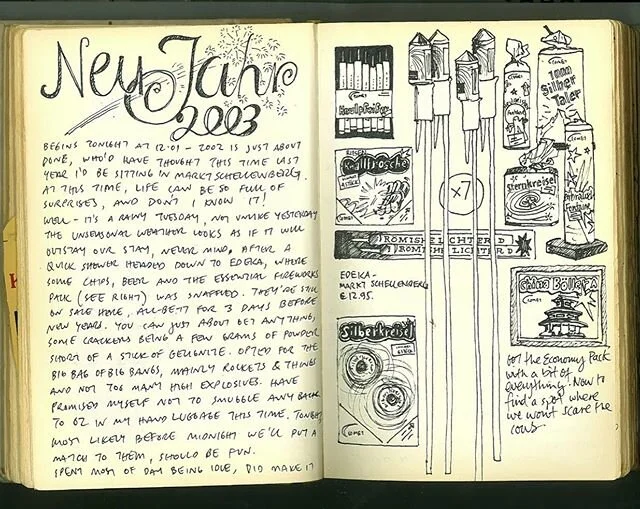 Neu Jahr
2003
BEGINS TONIGHT AT 12.01 - 2002 IS JUST ABOUT
DONE, WHO'D HAVE THOUGHT THIS TIME LAST
YEAR I'D BE SITTING IN MARKTSCHELLENBERG.
AT THIS TIME, LIFE CAN BE SO FULL OF
SURPRISES, AND DON'T I KNOW IT!
WELL - IT'S A RAINY TUESDAY, NOT UNLIKE YESTERDAY
THE UNSEASONAL WEATHER LOOKS AS IF IT WILL
OUTSTAY OUR STAY, NEVER MIND. AFTER A
QUICK SHOWER HEADED DOWN TO EDEKA, WHERE
SOME CHIPS, BEER AND THE ESSENTIAL FIREWORKS
PACK (SEE RIGHT) WAS SNAFFLED. THEY'RE STILL
ON SALE HERE, ALBEIT FOR 3 DAYS BEFORE
NEW YEARS. YOU CAN JUST ABOUT GET ANYTHING,
SOME CRACKERS BEING A FEW GRAMS OF POWDER
SHORT OF A STICK OF GELIGNITE. OPTED FOR THE
BIG BAG OF BIG BANGS, MAINLY ROCKETS & THINGS
AND NOT TOO MANY HIGH EXPLOSIVES. HAVE
PROMISED MYSELF NOT TO SMUGGLE ANY BACK
TO OZ IN MY HAND LUGGAGE THIS TIME. TONIGHT,
MOST LIKELY BEFORE MIDNIGHT WE'LL PUT A
MATCH TO THEM, SHOULD BE FUN.
SPENT MOST OF DAY BEING IDLE, DID MAKE IT
COMET
Knallfrösche
x7
ROMISHE LICHTER D
ROMISHE LICHTER D
EDEKA-
MARKT SCHELLENBERG
€12.95.
Silberkreisel
COMET
COMET
1000
Silber
Taler
COMET
Sternkreisel
China Böller A
COMET
Got the Economy Pack
with a bit of
everything. Now to
find a spot where
we wont scare the
cows